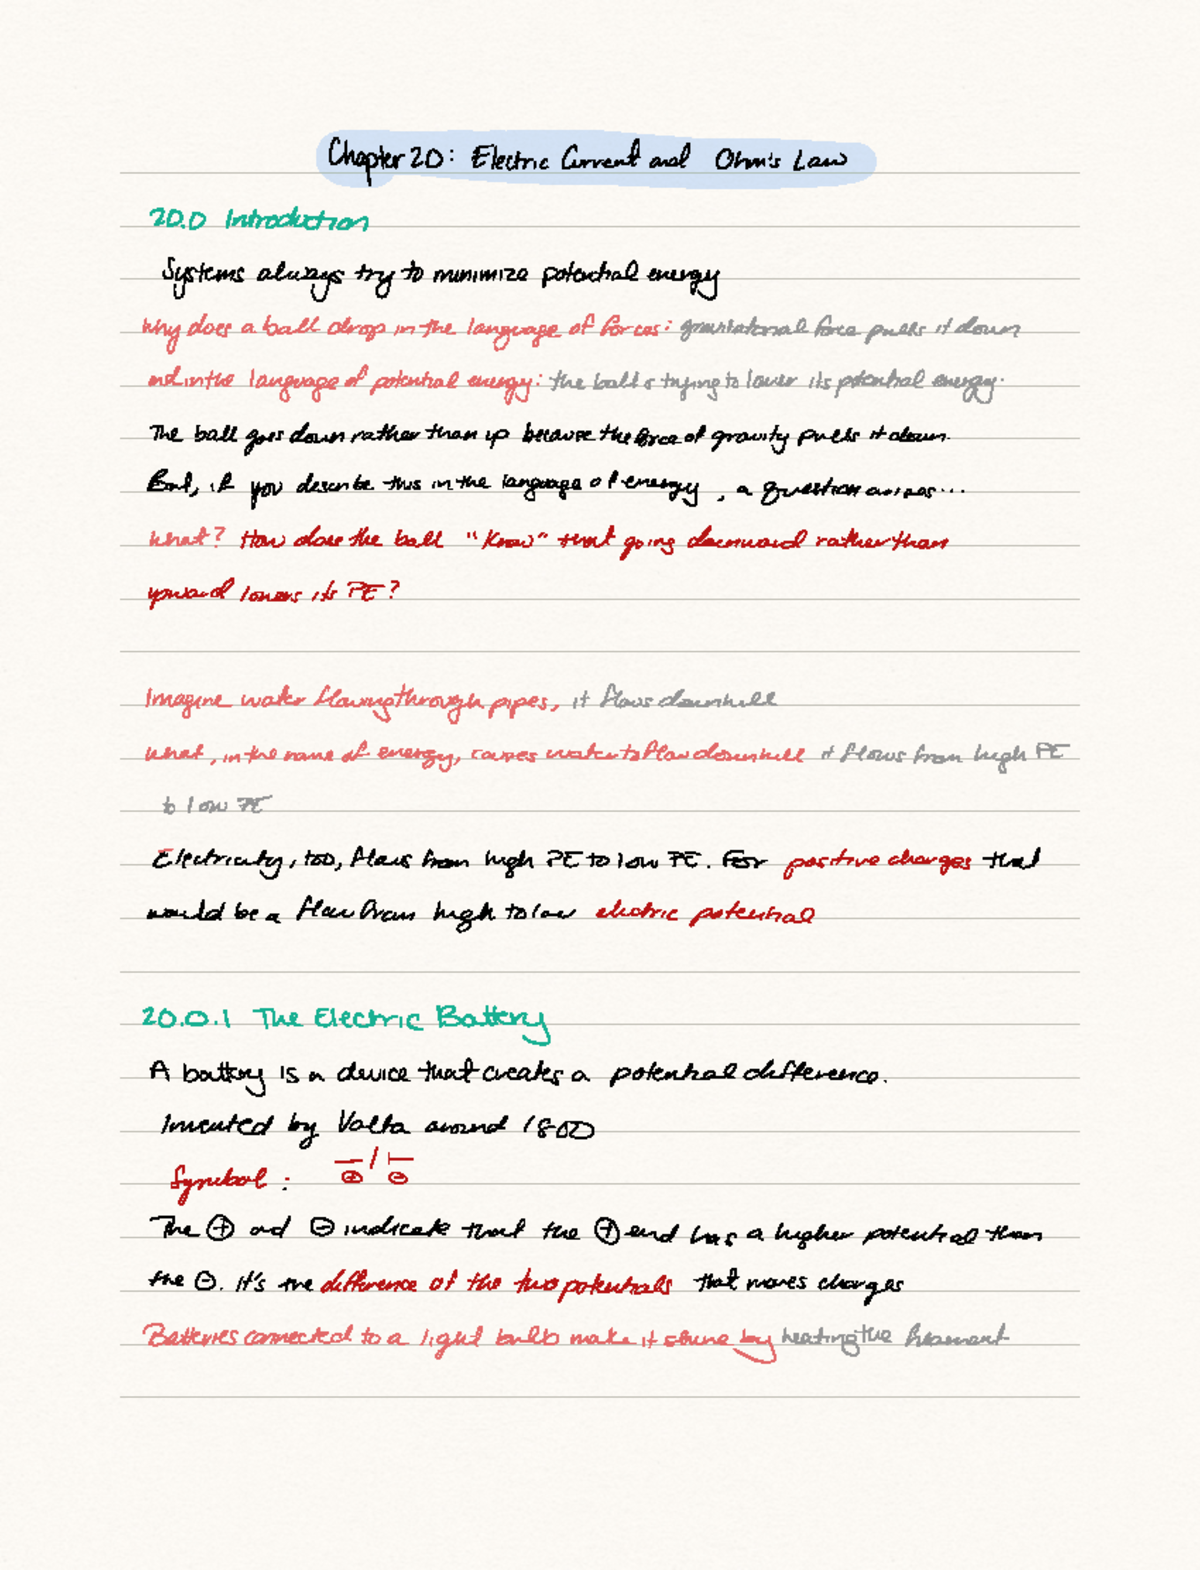 Chapter 20: Electric Current and Ohm's Law
20.0 Introduction
Systems always try to minimize potential energy
Why does a ball drop in the language of forces: gravitational force pulls it down
and in the language of potential energy: the ball is trying to lower its potential energy.
The ball goes down rather than up because the force of gravity pulls it down.
But, if you describe this in the language of energy, a question arises...
What? How does the ball "know" that going downward rather than
upward lowers its PE?
Imagine water flowing through pipes, it flows downhill
What, in the name of energy, causes water to flow downhill it flows from high PE
to low PE
Electricity, too, flows from high PE to low PE. For positive charges that
would be a flow from high to low electric potential
20.0.1 The Electric Battery
A battery is a device that creates a potential difference.
Invented by Volta around 1800
Symbol:
The + and - indicate that the + end has a higher potential than
the -. It's the difference of the two potentials that moves charges
Batteries connected to a light bulb make it shine by heating the filament